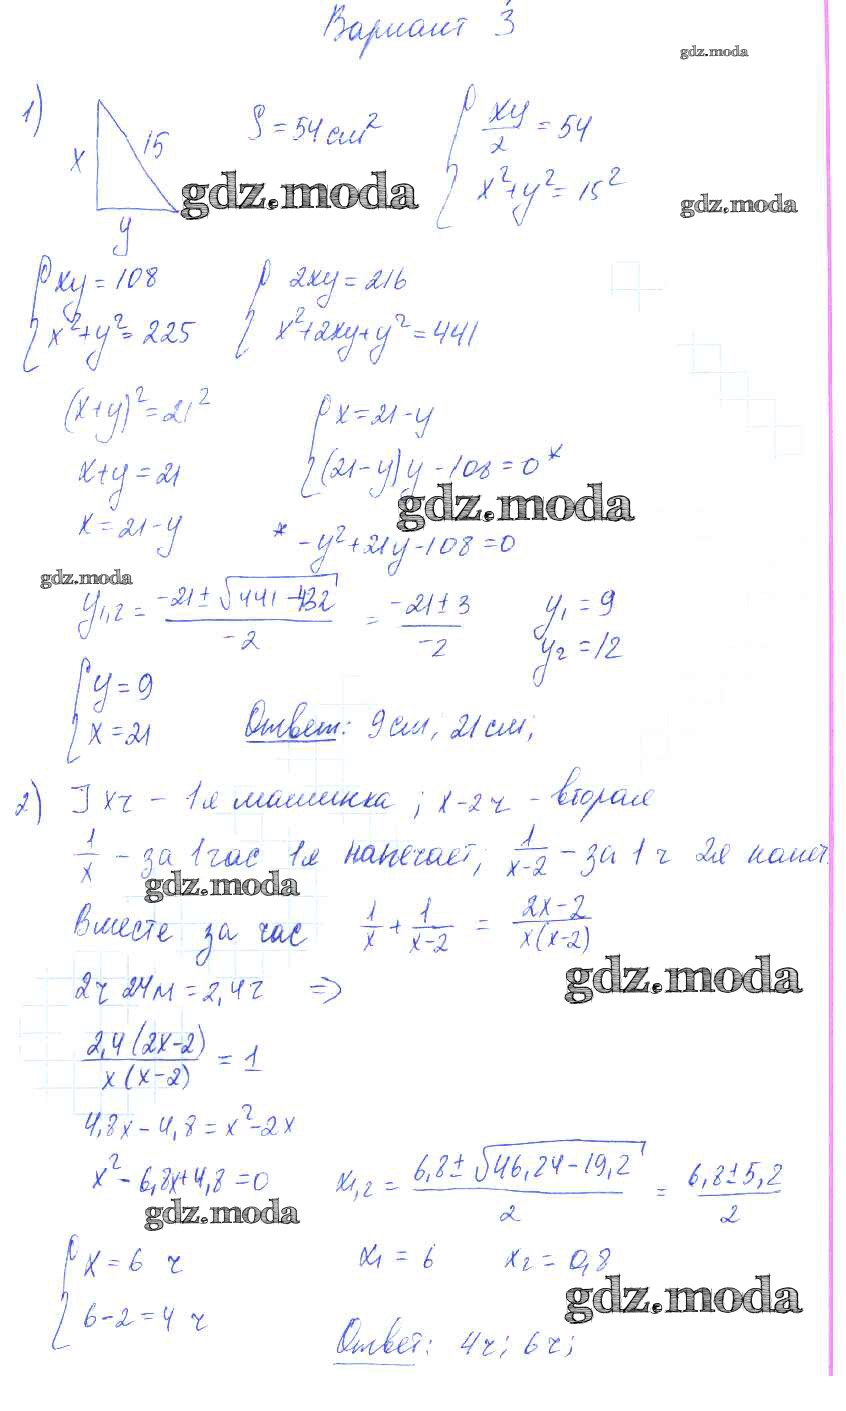 Вариант 3
gdz.moda
1) x 15 y S = 54 см² { xy/2 = 54
x² + y² = 15²
gdz.moda gdz.moda
{ xy = 108 { 2xy = 216
x² + y² = 225 x² + 2xy + y² = 441
(x+y)² = 21² { x = 21 - y
x + y = 21 (21 - y) y - 108 = 0 *
gdz.moda
x = 21 - y * -y² + 21y - 108 = 0
gdz.moda
y₁,₂ = (-21 ± √(441 - 432)) / -2 = (-21 ± 3) / -2 y₁ = 9
y₂ = 12
{ y = 9
x = 21 Ответ: 9 см; 21 см;
2) ] x ч - 1я машинка; x - 2 ч - вторая
1/x - за 1 час 1я напечает; 1/(x-2) - за 1 ч 2я напеч.
gdz.moda
Вместе за час 1/x + 1/(x-2) = (2x-2)/(x(x-2))
gdz.moda
2ч 24м = 2,4ч ⇒
2,4(2x-2)/(x(x-2)) = 1
4,8x - 4,8 = x² - 2x
x² - 6,8x + 4,8 = 0 x₁,₂ = (6,8 ± √(46,24 - 19,2)) / 2 = (6,8 ± 5,2) / 2
gdz.moda
{ x = 6 ч x₁ = 6 x₂ = 0,8
gdz.moda
6 - 2 = 4 ч
Ответ: 4ч; 6ч;